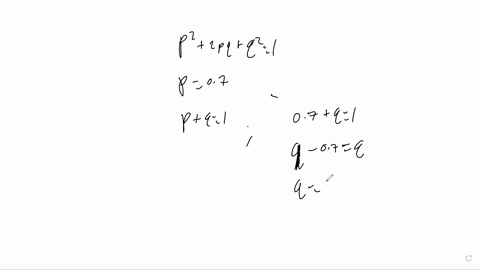 p²+2pq+q²=1
p=0.7
p+q=1
0.7+q=1
1-0.7=q
q=